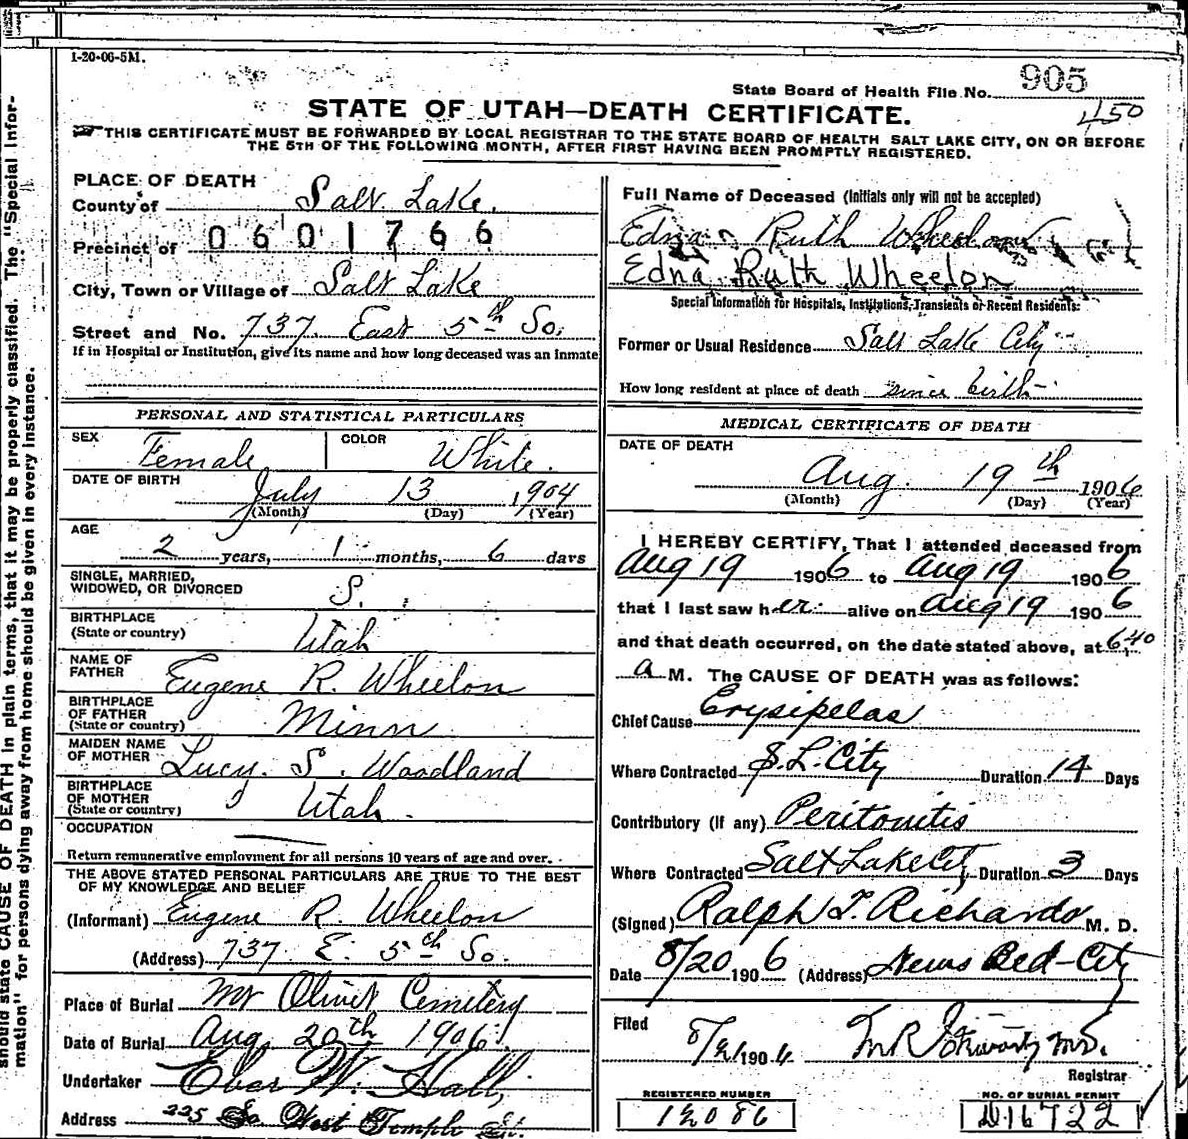 1-20-06-5M.
State Board of Health File No. 905
450
STATE OF UTAH—DEATH CERTIFICATE.
THIS CERTIFICATE MUST BE FORWARDED BY LOCAL REGISTRAR TO THE STATE BOARD OF HEALTH SALT LAKE CITY, ON OR BEFORE
THE 5TH OF THE FOLLOWING MONTH, AFTER FIRST HAVING BEEN PROMPTLY REGISTERED.
should state CAUSE OF DEATH in plain terms, that it may be properly classified. The "Special Infor-
mation" for persons dying away from home should be given in every instance.
PLACE OF DEATH
County of Salt Lake.
Precinct of 0601766
City, Town or Village of Salt Lake
Street and No. 737 East 5th So.
If in Hospital or Institution, give its name and how long deceased was an Inmate
PERSONAL AND STATISTICAL PARTICULARS
SEX Female COLOR White.
DATE OF BIRTH July 13 1904
(Month) (Day) (Year)
AGE
2 years, 1 months, 6 days
SINGLE, MARRIED,
WIDOWED, OR DIVORCED S.
BIRTHPLACE
(State or country) Utah
NAME OF
FATHER Eugene R. Wheelon
BIRTHPLACE
OF FATHER
(State or country) Minn
MAIDEN NAME
OF MOTHER Lucy S. Woodland
BIRTHPLACE
OF MOTHER
(State or country) Utah.
OCCUPATION
Return remunerative employment for all persons 10 years of age and over.
THE ABOVE STATED PERSONAL PARTICULARS ARE TRUE TO THE BEST
OF MY KNOWLEDGE AND BELIEF
(Informant) Eugene R. Wheelon
(Address) 737 E. 5th So.
Place of Burial Mt Olivet Cemetery
Date of Burial Aug. 20th 1906
Undertaker Eber W. Hall,
Address 225 So West Temple St.
Full Name of Deceased (Initials only will not be accepted)
Edna Ruth Wheelon
Edna Ruth Wheelon
Special Information for Hospitals, Institutions, Transients or Recent Residents:
Former or Usual Residence Salt Lake City
How long resident at place of death since birth
MEDICAL CERTIFICATE OF DEATH
DATE OF DEATH
Aug. 19th 1906
(Month) (Day) (Year)
I HEREBY CERTIFY, That I attended deceased from
Aug 19 1906 to Aug 19 1906
that I last saw her alive on Aug 19 1906
and that death occurred, on the date stated above, at 6:40
a M. The CAUSE OF DEATH was as follows:
Chief Cause Erysipelas
Where Contracted S.L. City Duration 14 Days
Contributory (if any) Peritonitis
Where Contracted Salt Lake City Duration 3 Days
(Signed) Ralph T. Richards M. D.
Date 8/20 1906 (Address) News Bld- City
Filed 8/21 1906
Registrar
REGISTERED NUMBER
12086
NO. OF BURIAL PERMIT
D16722